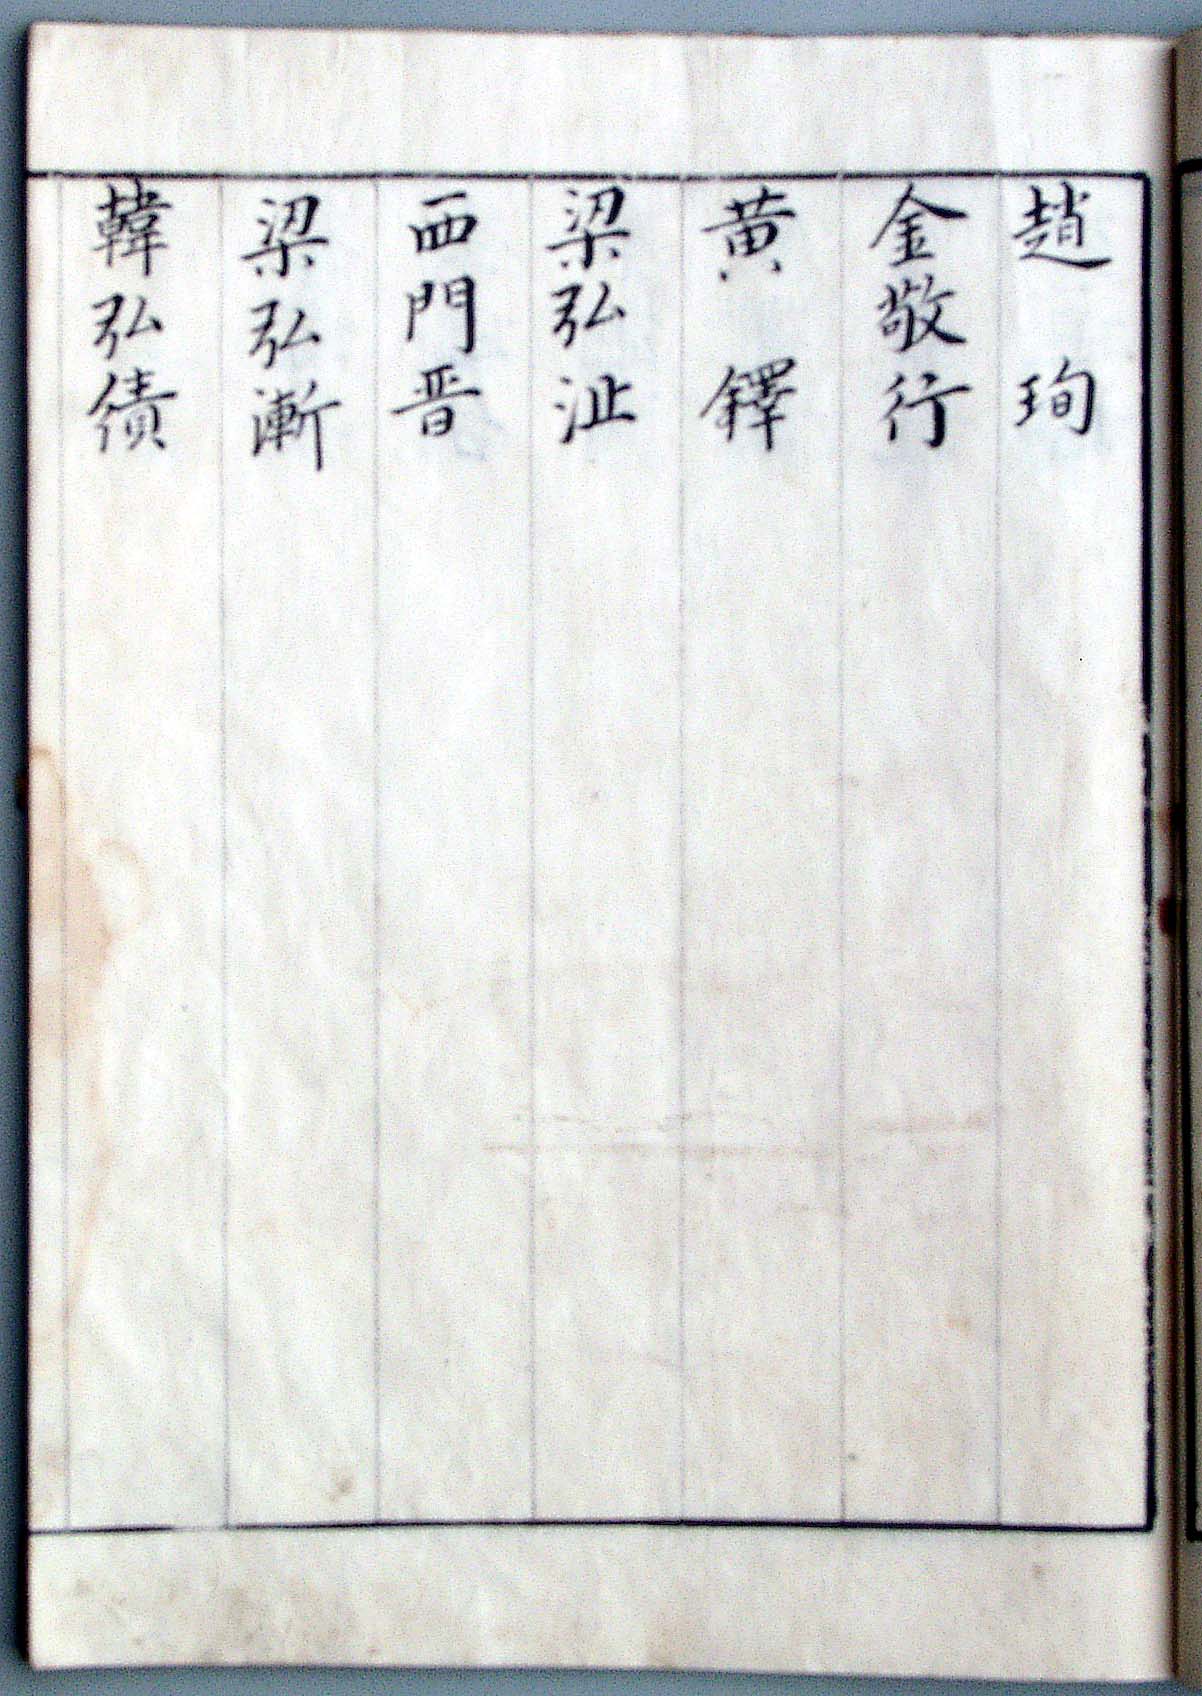 趙珣
金敬行
黃鐸
梁弘沚
西門晋
梁弘漸
韓弘績